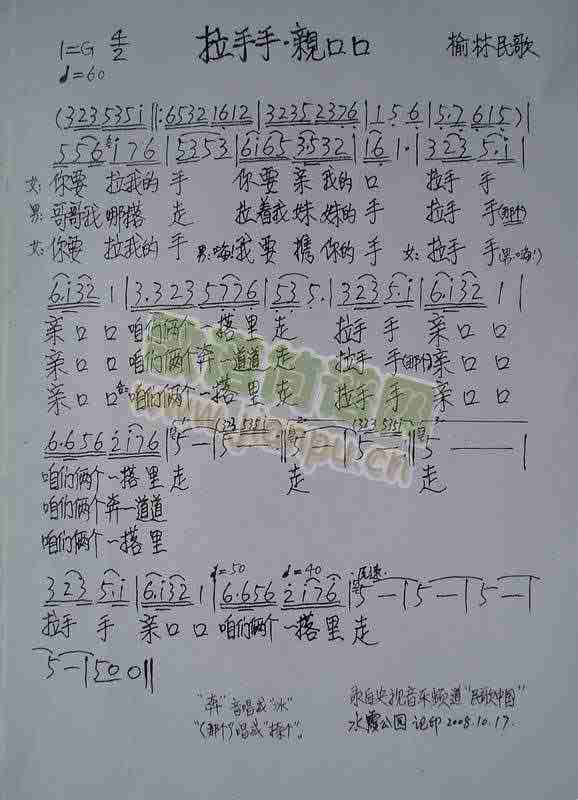 1=G 4/2 拉手手·親口口 榆林民歌
♩=60
(323 535i |‖: 65321612 | 32352376 | 1 5 6 | 5·7 615) |
556 i76 | 5353 | 6i65 3532 | 16 1· | 323 5·i |
女: 你要 拉我的 手 你要 亲我的 口 拉手 手
男: 哥哥我 哪搭 走 拉着我 妹妹的 手 拉手 手(那个)
女: 你要 拉我的 手 男:(嗨!)我要 携你的 手 女: 拉手 手(男:嗨!)
6·i32 1 | 3·323 5776 | 53 5· | 323 5·i | 6·i32 1 |
亲口 口 咱们俩个 一搭里 走 拉手 手 亲口 口
亲口 口 咱们俩个 奔一道道 走 拉手 手(那个) 亲口 口
亲口 口 咱们俩个 一搭里 走 拉手 手 亲口 口
6·656 2i76 | 5 — | 5 — :‖ 5 — | 5 — :‖ 5 — — — |
咱们俩个 一搭里 走 走 走
咱们俩个 奔一道道
咱们俩个 一搭里
♩=50 ♩=40
323 5·i | 6·i32 1 | 6·656 2i76 | 5 — | 5 — | 5 — |
拉手 手 亲口 口 咱们俩个 一搭里 走
5 — | 50 0 ‖
"奔"音唱成"冰" 录自央视音乐频道"民歌中国"
"(那个)"唱成 水霞公园 记印 2008.10.17.
www.jianpu.cn